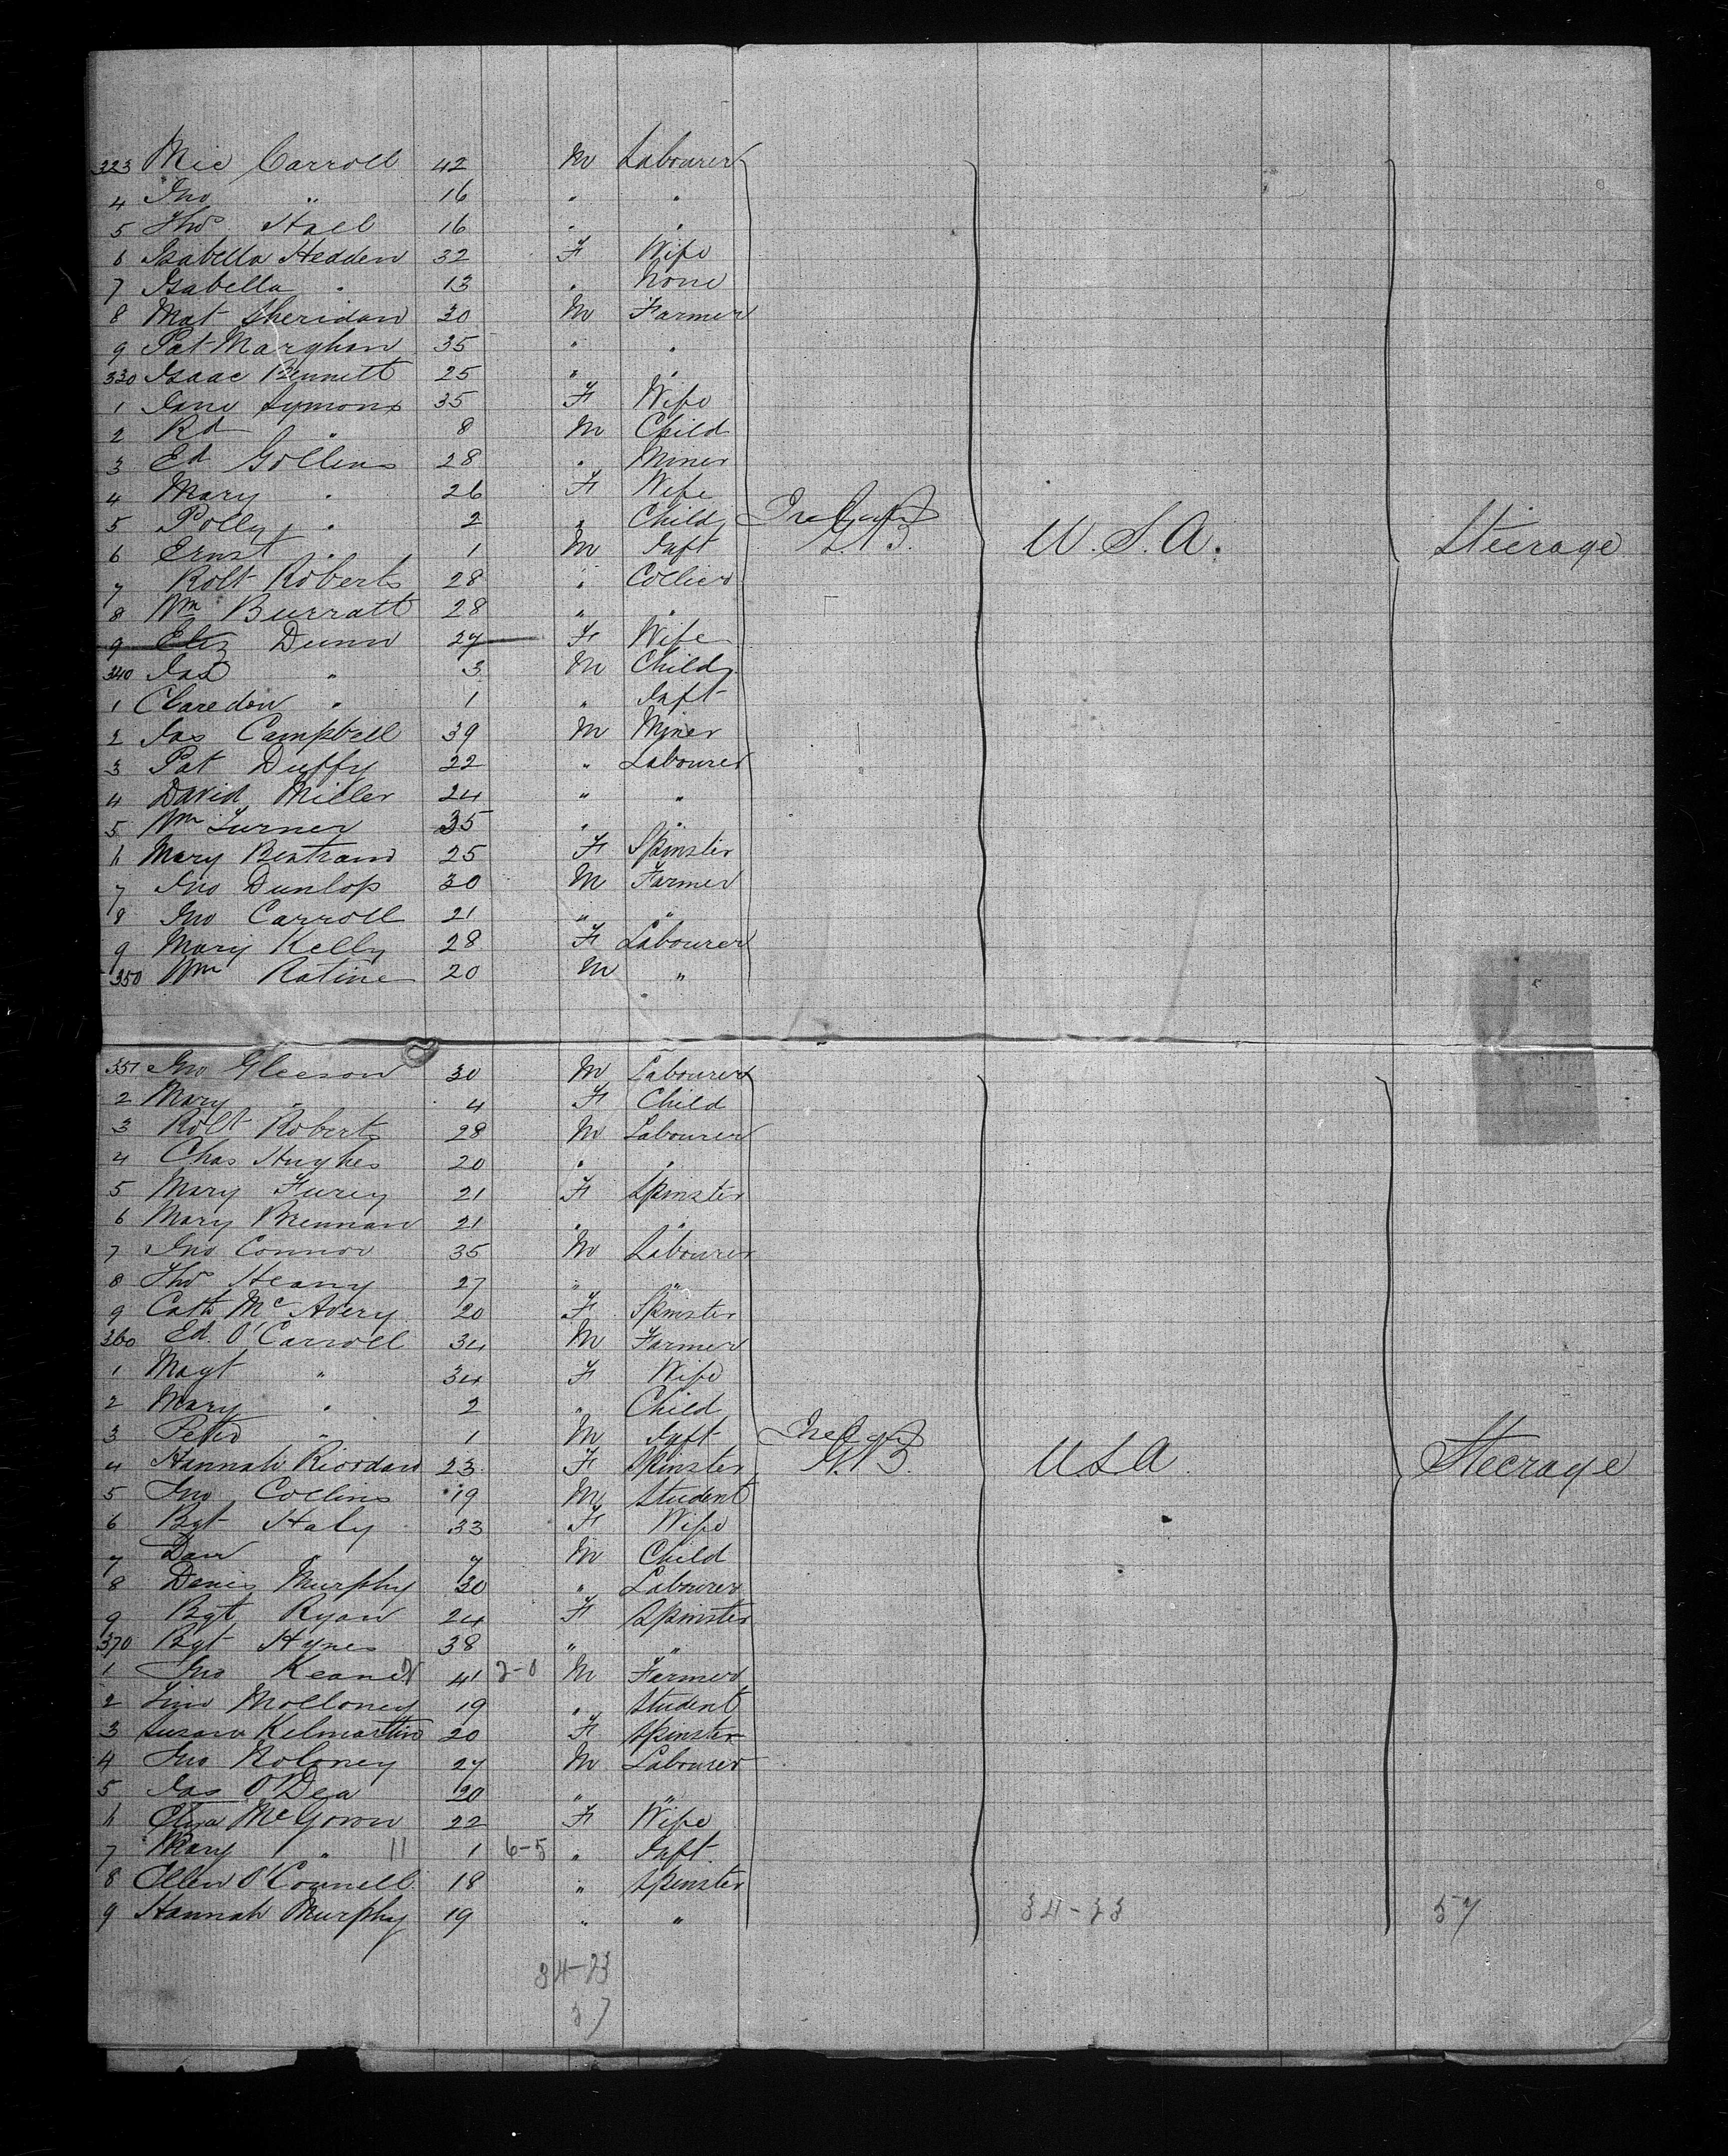 323 Mic Carroll 42 M Labourer
4 Jno " 16 " "
5 Tho Hall 16 " "
6 Isabella Hedden 32 F Wife
7 Isabella " 13 " None
8 Mat Sheridan 30 M Farmer
9 Pat Marghan 35 " "
330 Isaac Bennett 25 " "
1 Jane Symons 35 F Wife
2 Rd " 8 M Child
3 Ed Gollins 28 " Miner
4 Mary " 26 F Wife
5 Polly " 2 " Child Ireland
6 Ernst " 1 M Inft G.B. U.S.A. Steerage
7 Robt Roberts 28 " Collier
8 Wm Burratt 28 " "
9 Eliz Dunn 27 F Wife
340 Jas " 3 M Child
1 Claredon " 1 " Inft
2 Jas Campbell 39 M Miner
3 Pat Duffy 22 " Labourer
4 David Miller 24 " "
5 Wm Turner 35 " "
6 Mary Bertram 25 F Spinster
7 Jno Dunlop 30 M Farmer
8 Jno Carroll 21 " "
9 Mary Kelly 28 F Labourer
350 Wm Ratine 20 M "
351 Jno Gleeson 30 M Labourer
2 Mary " 4 F Child
3 Robt Roberts 28 M Labourer
4 Chas Hughes 20 " "
5 Mary Furey 21 F Spinster
6 Mary Brennan 21 " "
7 Jno Connor 35 M Labourer
8 Tho Heany 27 " "
9 Cath McAvery 20 F Spinster
360 Ed O'Carroll 34 M Farmer
1 Magt " 34 F Wife
2 Mary " 2 " Child
3 Peter " 1 M Inft Ireland
4 Hannah Riordan 23 F Spinster G.B. USA Steerage
5 Jno Collins 19 M Student
6 Bgt Haly 33 F Wife
7 Dan " 7 M Child
8 Denis Murphy 30 " Labourer
9 Bgt Ryan 24 F Spinster
370 Bgt Hynes 38 " "
1 Jno Keane 41 2-0 M Farmer
2 Timo Molloney 19 " Student
3 Susan Kelmartin 20 F Spinster
4 Jno Moloney 27 M Labourer
5 Jas O'Dea 20 " "
6 Eliza McGowan 22 F Wife
7 Mary " 11 1 6-5 " Inft
8 Ellen O'Connell 18 " Spinster
9 Hannah Murphy 19 " " 34-23 57
34-23
57